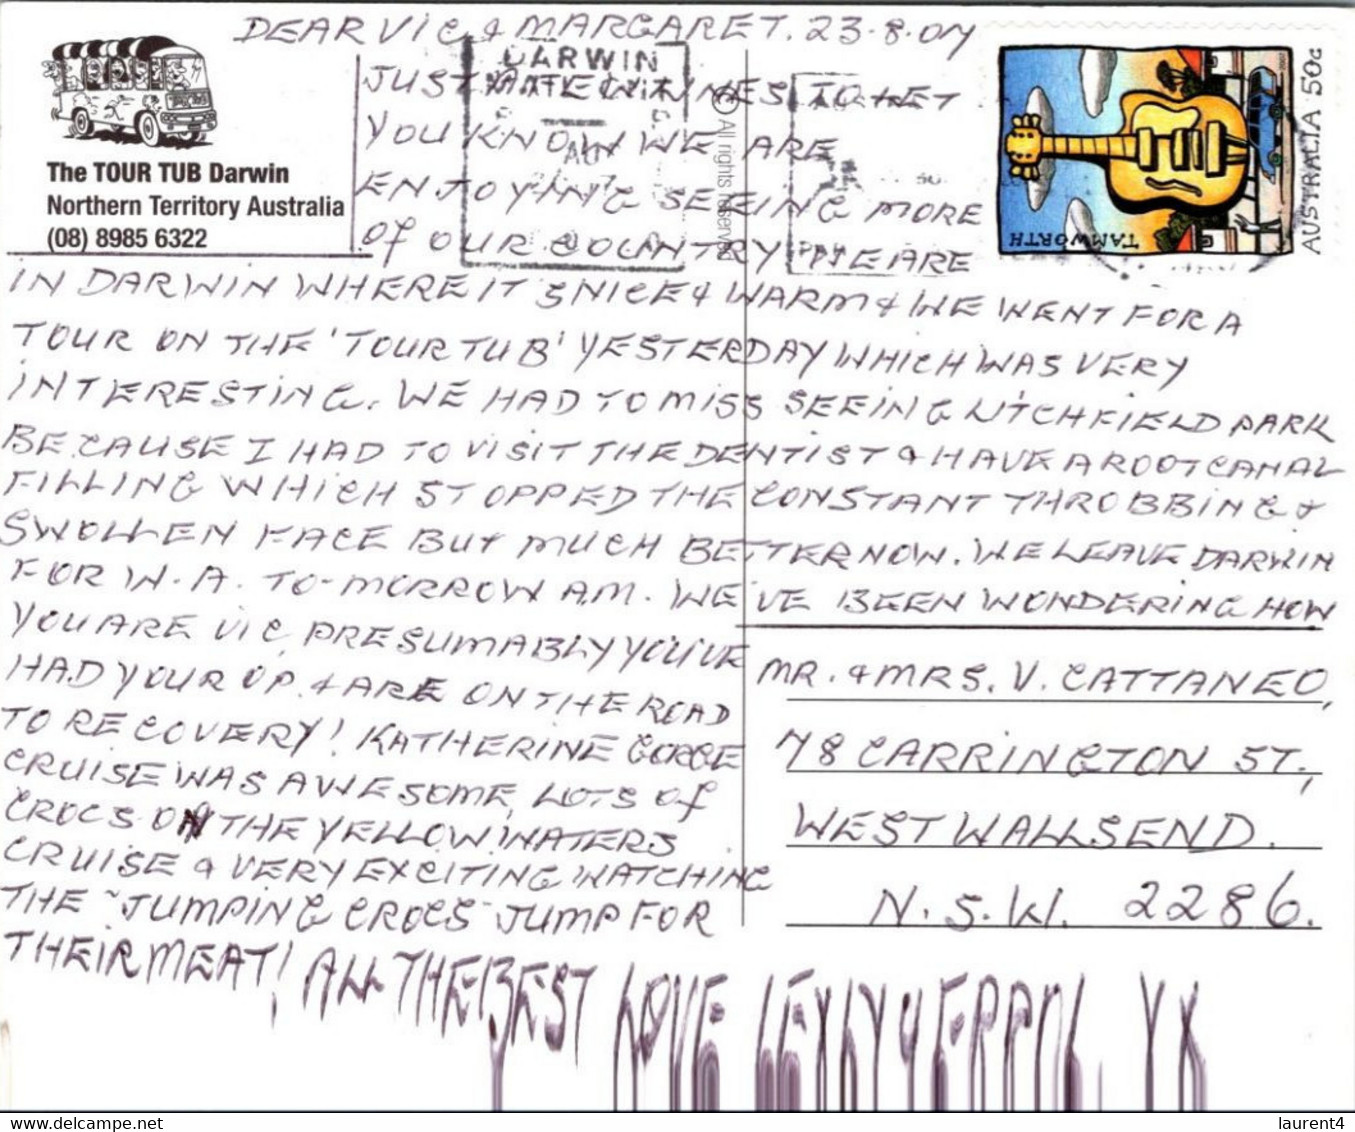 DEAR VIC & MARGARET. 23.8.07
JUST A FEW LINES TO LET
YOU KNOW WE ARE
ENJOYING SEEING MORE
OF OUR COUNTRY. WE ARE
IN DARWIN WHERE IT'S NICE & WARM & WE WENT FOR A
TOUR ON THE 'TOUR TUB' YESTERDAY WHICH WAS VERY
INTERESTING. WE HAD TO MISS SEEING LITCHFIELD PARK
BECAUSE I HAD TO VISIT THE DENTIST & HAVE A ROOT CANAL
FILLING WHICH STOPPED THE CONSTANT THROBBING &
SWOLLEN FACE BUT MUCH BETTER NOW. WE LEAVE DARWIN
FOR W.A. TO-MORROW AM. WE'VE BEEN WONDERING HOW
YOU ARE VIC, PRESUMABLY YOU'VE
HAD YOUR OP. & ARE ON THE ROAD
TO RECOVERY! KATHERINE GORGE
CRUISE WAS AWESOME, LOTS OF
CROCS ON THE YELLOW WATERS
CRUISE & VERY EXCITING WATCHING
THE "JUMPING CROCS" JUMP FOR
THEIR MEAT! ALL THE BEST LOVE XX
The TOUR TUB Darwin
Northern Territory Australia
(08) 8985 6322
DARWIN
© All rights reserved
TAMWORTH
AUSTRALIA 50c
MR. & MRS. V. CATTANEO,
78 CARRINGTON ST.,
WEST WALLSEND.
N.S.W. 2286.
laurent4